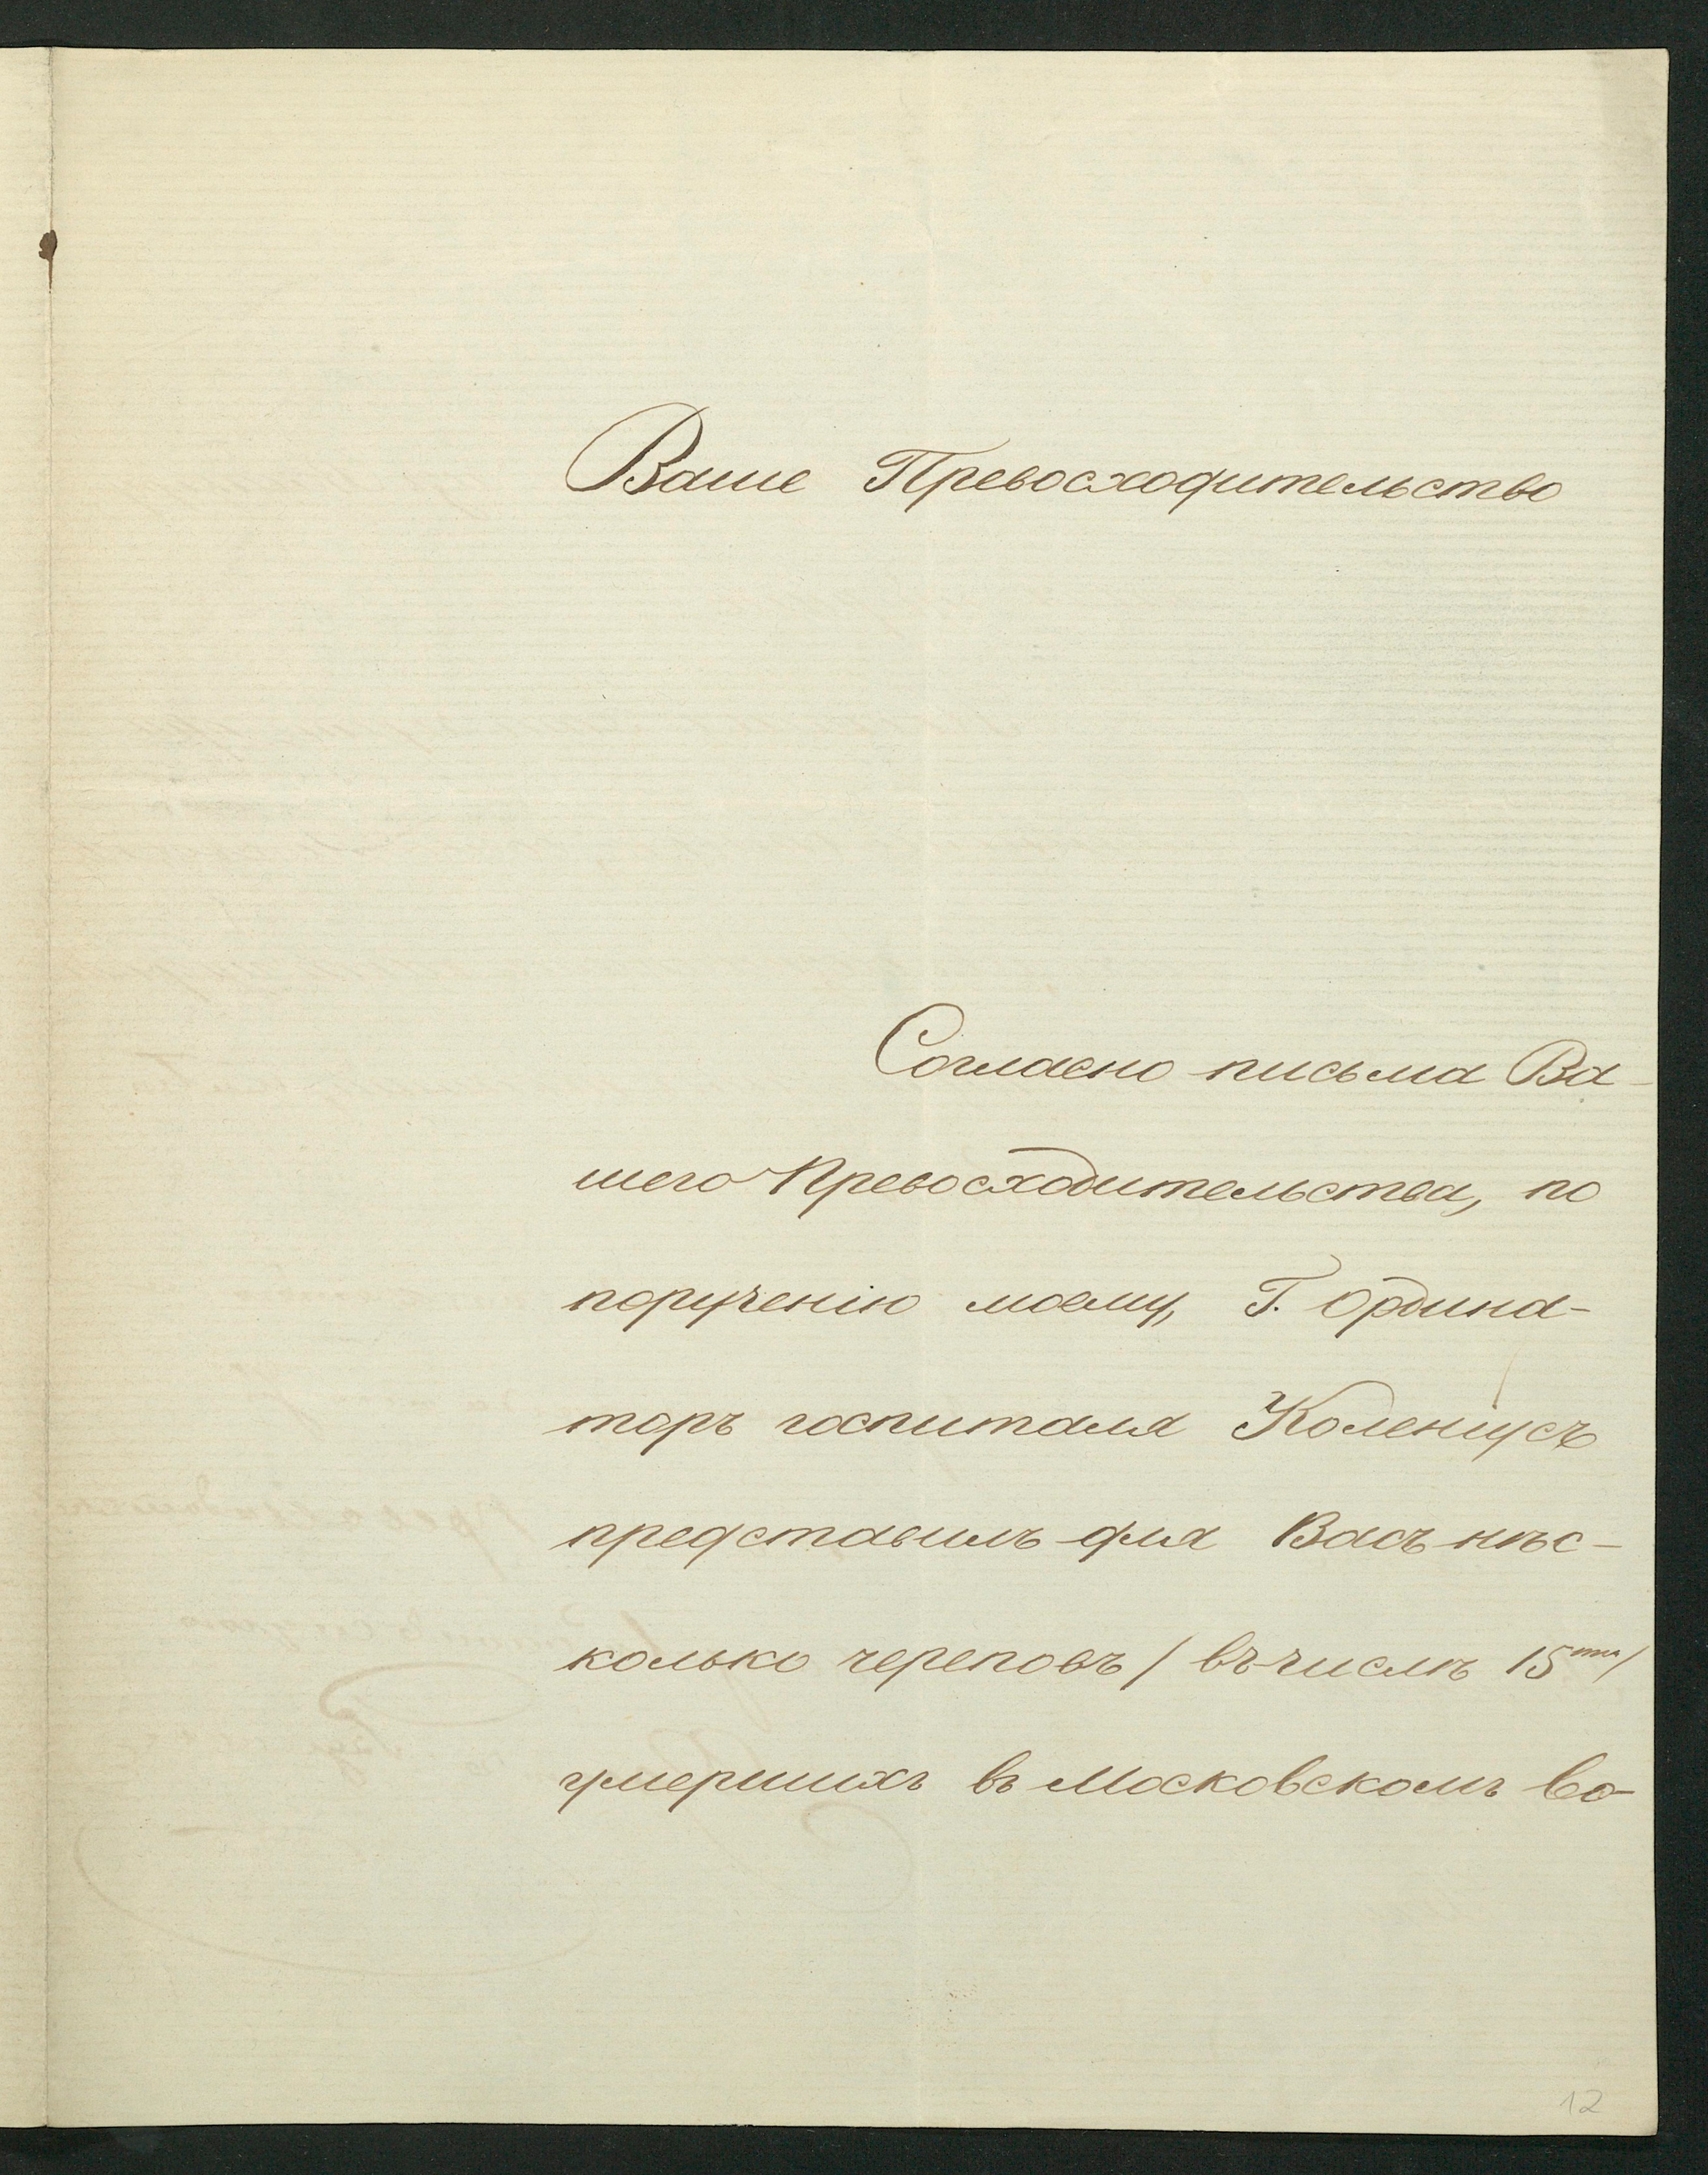 Ваше Превосходительство
Согласно письма Ва-
шего Превосходительства, по
порученію моему, Г. Ордина-
торъ госпиталя Коленіусъ
представилъ для Васъ нѣс-
колько череповъ / въ числѣ 15ти /
умершихъ въ Московскомъ во-
12